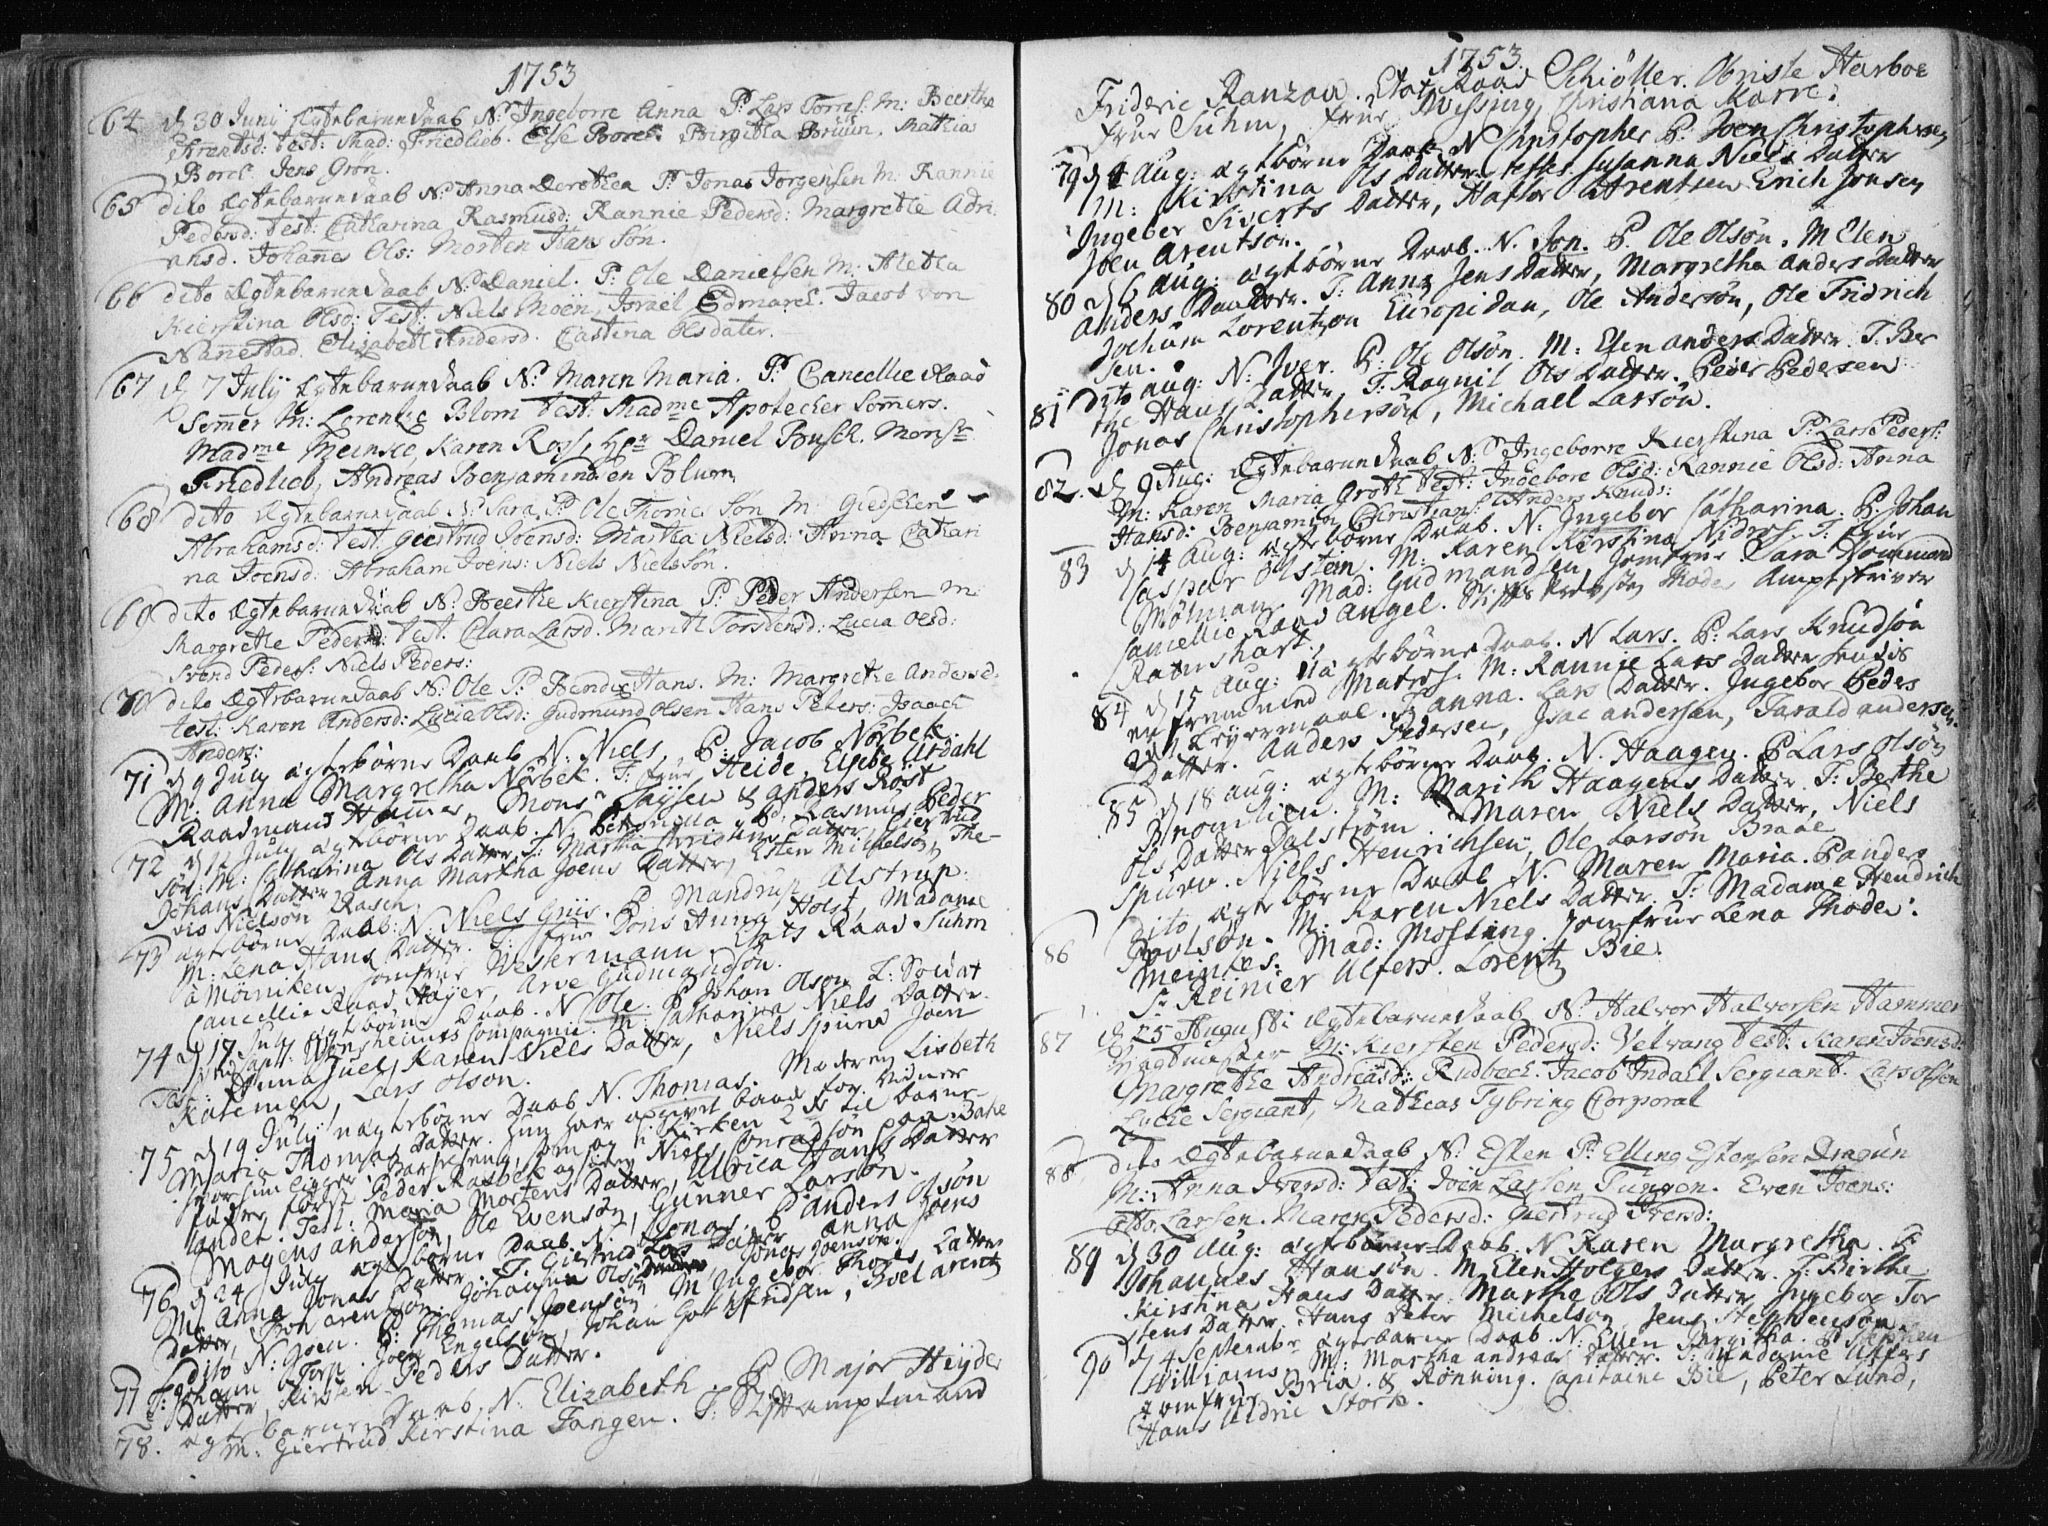 1753
64 d 30 Junij Ægtebarnedaab N: Ingeborre Anna P: Lars Torres: M: Beertha
Arentsd: test: Mad: Friedlieb. Else Borch. Birgitta Brüün. Mathias
Borch Jens Grøn.
65 dito Ægtebarnedaab N: Anna Dorothea P: Jonas Jørgensen M: Rannie
Pedersd: test: Catharina Rasmusd: Rannie Pedersd: Margrethe Adri-
ansd. Johañes Ols: Morten Hans Søn.
66 dito Ægtebarnedaab N: Daniel. P: Ole Danielsen M: Aletha
Kierstina Olsd: Test: Niels Moen, Israel Edmarch. Jacob von
Nañestad. Elizabeth Andersd. Castina Olsdater.
67 d 7 July Ægtebarnedaab N: Maren Maria. P: Cancellie Raad
Somer M: Lorentze Blom test: Madme Apotecher Somers.
Madme Meincke, Karen Ross, Hr Daniel Busch. Monsr
Friedlieb, Andreas Benjaminsen Bluom
68 dito Ægtebarnedaab N: Sara P: Ole Thomes Søn M: Giedsken
Abrahamsd: test. Geertrud Joensd: Martha Nielsd: Anna Cathari
na Joensd: Abraham Joens: Niels Nielssøn.
69 dito Ægtebarnedaab N: Beerthe Kierstina P: Peder Andersen M:
Margrethe Pedersd: test. Clara Larsd. Marith Torstensd: Lucia Olsd:
Svend Peders: Niels Peders:
70 dito Ægtebarnedaab N: Ole P: Bendix Hans. M: Margrethe Andersd.
test: Karen Andersd: Lucia Olsd: Gudmund Olsen Hans Peters: Isaach
Anders:
71 d 9 July ægtebørne Daab N. Niels, P: Jacob Nørbek.
M. Anna Margretha Nørbek. T: frue Heide, Elsebe Urdahl
Raadmand Hammer, Monsr Taysen & anders Rost
72 d 12 July ægtebørne Daab. N. Petronella P. Rasmus Peder
Søn: M: Catharina Ols Datter T: Martha Christens Datter, Giertrud
Johans Datter Anna Martha Joens Datter, Esten Michelson, The-
vis Nielson Rasch.
73 ægtebørne Daab: N. Niels Griis. P. Mandrup Alstrup.
M: Lena Hans Datter. T: frue Dons Anna Holst, Madame
à Møiniken, jomfrue Westermann, Etats Raad Suhm
Cancellie Raad Hayer, Arve Gudmandsøn.
74 d 17 July ægtebørne Daab. N Ole. P Johan Olson L: Soldat
Capt: Wensheims Compagnie. M. Catharina Niels Datter.
Test: Anna Juel, Karen Niels Datter, Niels Spurre Joen
Karemen, Lars Olson.
75 d 19 July uægtebørne Daab N. Thomas. Moderen Lisbeth
Maria Thomas Datter. hun har opgivet baade for
hvor hun ligger i Barselseng, som og i Kirken 2 til barne
fader, først Peder Raebek og siden Niels Conradson paa Bakke
landet. Test: Maria Mortens Datter, Ulrica Hans Datter
Mogens anderson, Ole Evensøn, Gunner Larsøn.
76 d 24 July ægtebørne Daab N. Jonas. P anders Olsøn
M: Anna Jonas Datter. T. Giertrud Lars Datter anna Joens
Datter, Joh: arentson: Johannes Olsøn, Jonas Joensøn.
77 dito N: Joen. P. Thomas Joensøn M Ingebor Thores Datter
T: Johann Tørs: Joen Engelsøn, Johan Gottfridsen, Boel arents
Datter, Kirsten Peders Datter.
78. ægtebarne Daab N. Elizabeth. P Major Heyde
M: Giertrud Kirstina Tangen. T: Stiftamptmand
1753.
Frideric Ranzau. Etats Raad Schiøller. Obriste Harboe
frue Suhm, frue Wissing, Christiana Marre.
79 d 4 Aug: ægtebørne Daab N Christopher P: Joen Christophersen
M: Kirstina Ols Datter testes. Susanna Niels Datter
Ingeber Siverts Datter, Haflor Arentsen Erich Jonsen
Joen Arentson.
80 d 6 Aug: ægtebørne Daab. N. Jon. P. Ole Olsøn. M Elen
Anders Datter. T: Anna Jens Datter, Margretha Anders Datter
Jochum Lorentzon Europidan, Ole Andersøn, Ole Fridrich
sen.
81 dito aug: N: Iver. P: Ole Olsøn. M: Elen anders Datter. T. Ber
the Hans Datter. T. Ragnil Ols Datter. Peder Pedersen
Jonas Christophersøn, Michael Larsøn.
82. d 9 Aug: Ægtebarnedaab N: Ingeborre Kierstina P: Lars Peders:
M: Karen Maria Groth test: Ingebore Olsd: Rannie Olsd: Anna
Hansd: Benjamin Christians: Anders Knuds:
83 d 14 Aug: ægtebørne Daab. N. Ingebor Catharina. P. Johan
Caspar Olstein. M: Karen Kirstina Nidros. T: frue
Mølmann Mad: Gudmandsen, Jomfrue Sara Hammond
Cancellie Raad Angel. Stiftsprovsten Thode Amptskriver
Ratenshart.
84 d 15 Aug: uægtebørne Daab. N Lars. P: Lars Knudsøn
en fremmed Matros. M: Rannie Lars Datter hendis
2den Leyermaal. T. Anna. Lars Datter. Ingebor Peders
Datter. Anders Pedersen, Isac andersen, Tarald andersen.
85 d 18 aug: ægtebørne Daab. N. Haagen. P Lars Olsøn
Bromlien. M: Marith Haagens Datter. T: Berthe
Ols Datter Dalstrøm. Maren Niels Datter, Niels
Spurre. Niels Henrichsen, Ole Larson Braae
86 dito ægtebørne Daab N. Maren Maria. P anders
Povlsøn. M: Karen Niels Datter. T: Madame Hendrich
Meinkes. Mad: Mossling. Jomfrue Lena Thode.
Sr Reinier Alfers. Lorentz Bie.
87 d 25 Augusti Ægtebarnedaab N: Halvor Halvorsen Hammer
Vagtmester M: Kiersten Pedersd: Velvang test: Karen Joensd:
Margrethe Andreasd: Rudbech. Jacob Indahl Sergiant. Lars Olssen
Lyche Sergiant, Mathias Tybring Corporal
88 dito Ægtebarnedaab N: Esten P: Elling Estensen Dragun
M: Anna Iversd: Test: Joen Larsen Tungen. Even Joens:
Otto Larsen. Maren Pedersd: Giertrud Iversd:
89 d 30 Aug: ægtebørne Daab. N Karen Margretha. P
Johannes Hansøn. M. Elen Holgers Datter. T: Birthe
Kirstina Hans Datter. Marthe Ols Datter, Ingebor Tor
stens Datter. Hans Peter Michelson, Jens Stephensøn.
90 d 4 September ægtebarne Daab. N: Ellen Birgitha. P Stephen
Williams. M: Martha andreas Datter. T: Madame Alfers
jomfrue Brix & Rønning. Capitaine Bie, Peter Lund,
Hans Uldric Stork.